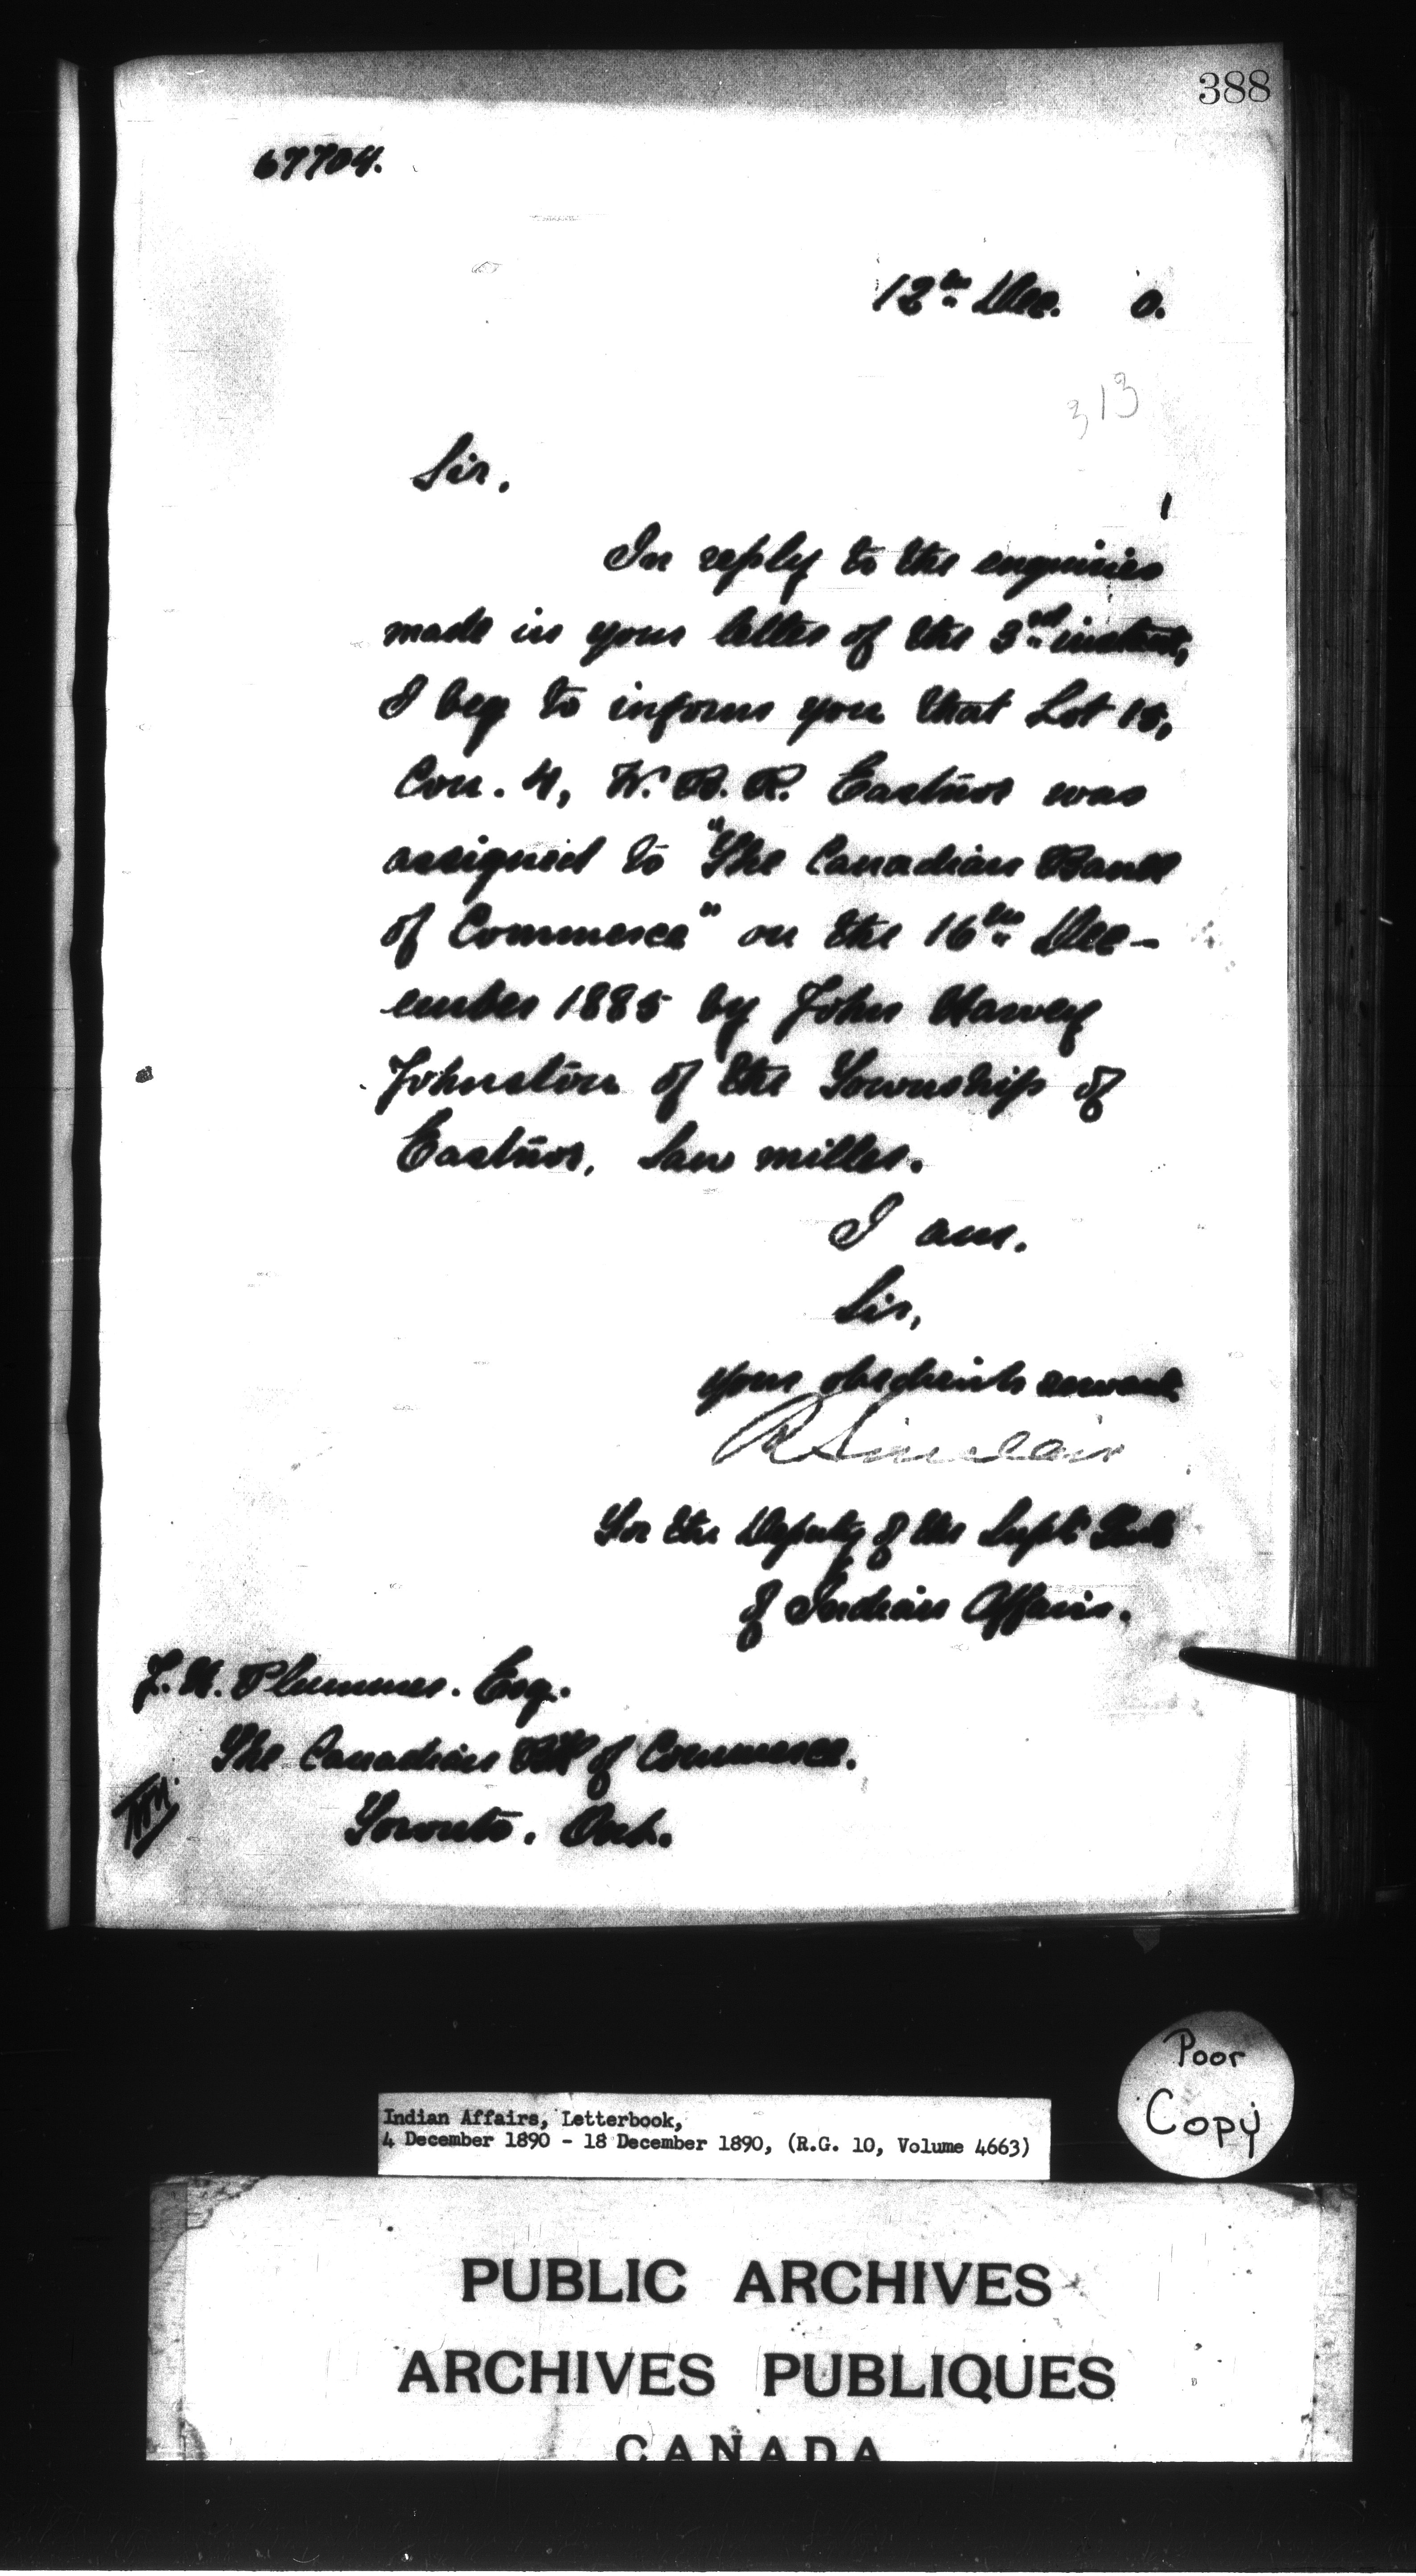 388
67704.
12th Dec. 0.
313
Sir,
In reply to the enquiries
made in your letter of the 3rd instant,
I beg to inform you that Lot 15,
Con. 4, W. B. R. Eastnor was
assigned to "The Canadian Bank
of Commerce" on the 16th Dec-
ember 1885 by John Harvey
Johnston of the Township of
Eastnor, Saw miller.
I am,
Sir,
Your obedient servant
R Sinclair
For the Deputy of the Supt. Genl.
of Indian Affairs.
J. H. Plummer. Esq.
The Canadian Bk of Commerce.
Toronto. Ont.
Poor
Copy
Indian Affairs, Letterbook,
4 December 1890 - 18 December 1890, (R.G. 10, Volume 4663)
PUBLIC ARCHIVES
ARCHIVES PUBLIQUES
CANADA